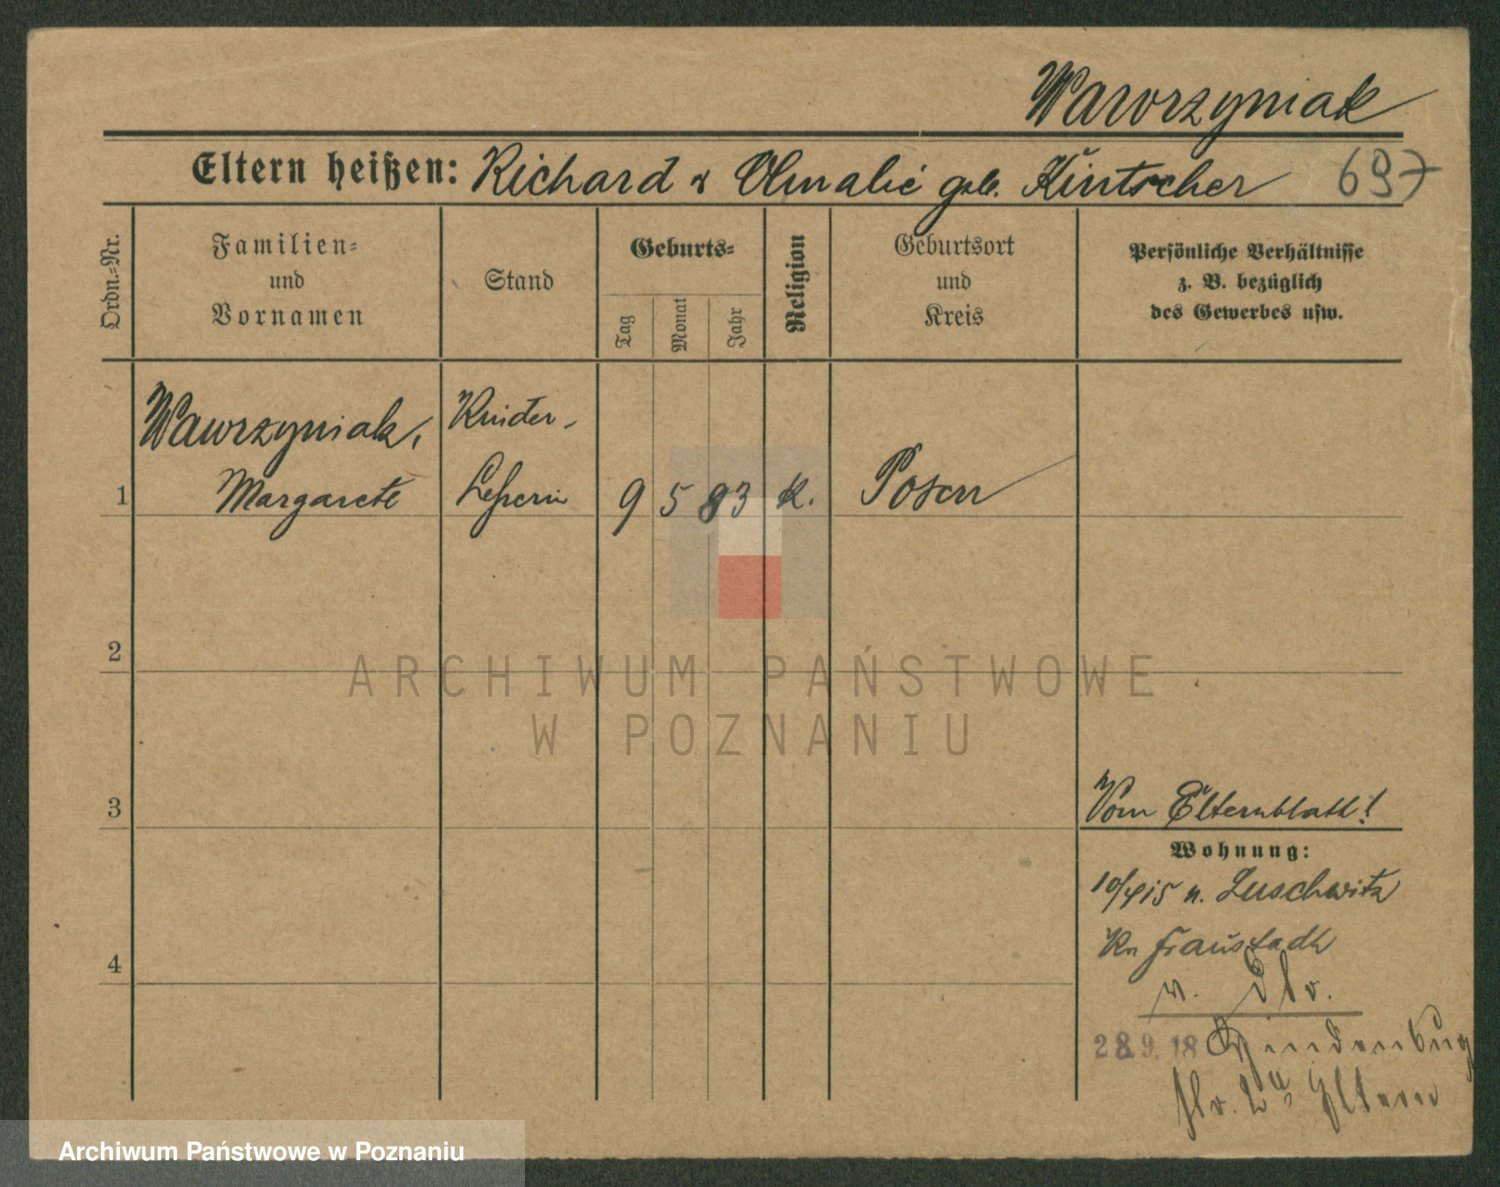 Wawrzyniak
Eltern heißen: Richard u Amalie geb. Kintscher 697
Ordn.-Nr.
Familien-
und
Vornamen
Stand
Geburts-
Tag
Monat
Jahr
Religion
Geburtsort
und
Kreis
Persönliche Verhältnisse
z. B. bezüglich
des Gewerbes usw.
1
Wawrzyniak,
Margarete
Kinder-
9 5 83 k. Posen
2
ARCHIWUM PAŃSTWOWE
W POZNANIU
3
Vom Elternblatt!
Wohnung:
10/4 15 n. Luschwitz
Kr Fraustadt
4
28.9.18 Hindenbug
str. Eltern
Archiwum Państwowe w Poznaniu